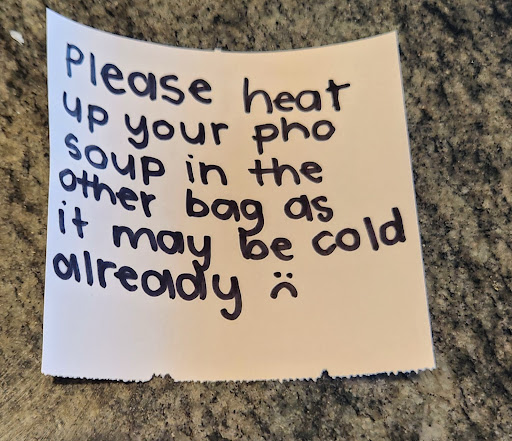 Please heat
up your pho
soup in the
other bag as
it may be cold
already :(